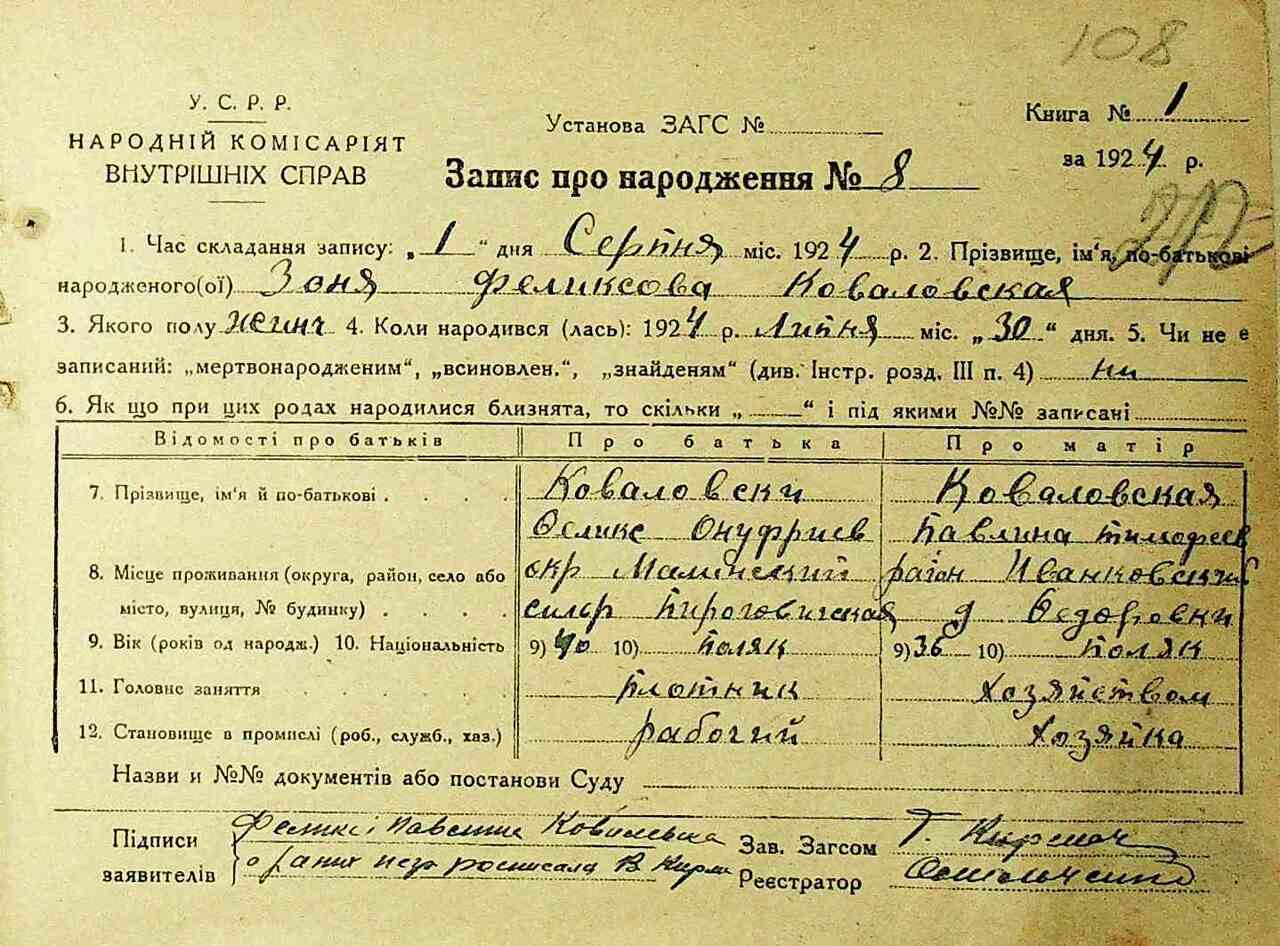 108
У. С. Р. Р.
НАРОДНІЙ КОМІСАРІЯТ
ВНУТРІШНІХ СПРАВ
Установа ЗАГС №
Книга № 1
за 1924 р.
Запис про народження № 8
1. Час складання запису: „1“ дня Серпня міс. 1924 р. 2. Прізвище, ім'я, по-батькові
народженого(ої) Зоня Феликсова Коваловская
3. Якого полу женч 4. Коли народився (лась): 1924 р. Липня міс. „30“ дня. 5. Чи не є
записаний: „мертвонародженим“, „всиновлен.“, „знайденям“ (див. Інстр. розд. III п. 4) ни
6. Як що при цих родах народилися близнята, то скільки „ “ і під якими №№ записані
Відомості про батьків Про батька Про матір
7. Прізвище, ім'я й по-батькові . . . . Коваловски Коваловская
Феликс Онуфриев Павлина Тимофеев
8. Місце проживання (округа, район, село або окр Малинский район Иванковский
місто, вулиця, № будинку) . . . . сильр Пироговичская д Федоровки
9. Вік (років од народж.) 10. Національність 9) 40 10) поляк 9) 36 10) поляк
11. Головне заняття . . . . . плотник хозяйством
12. Становище в промислі (роб., служб., хаз.) рабочий хозяйка
Назви и №№ документів або постанови Суду
Підписи
заявителів
Зав. Загсом
Реєстратор